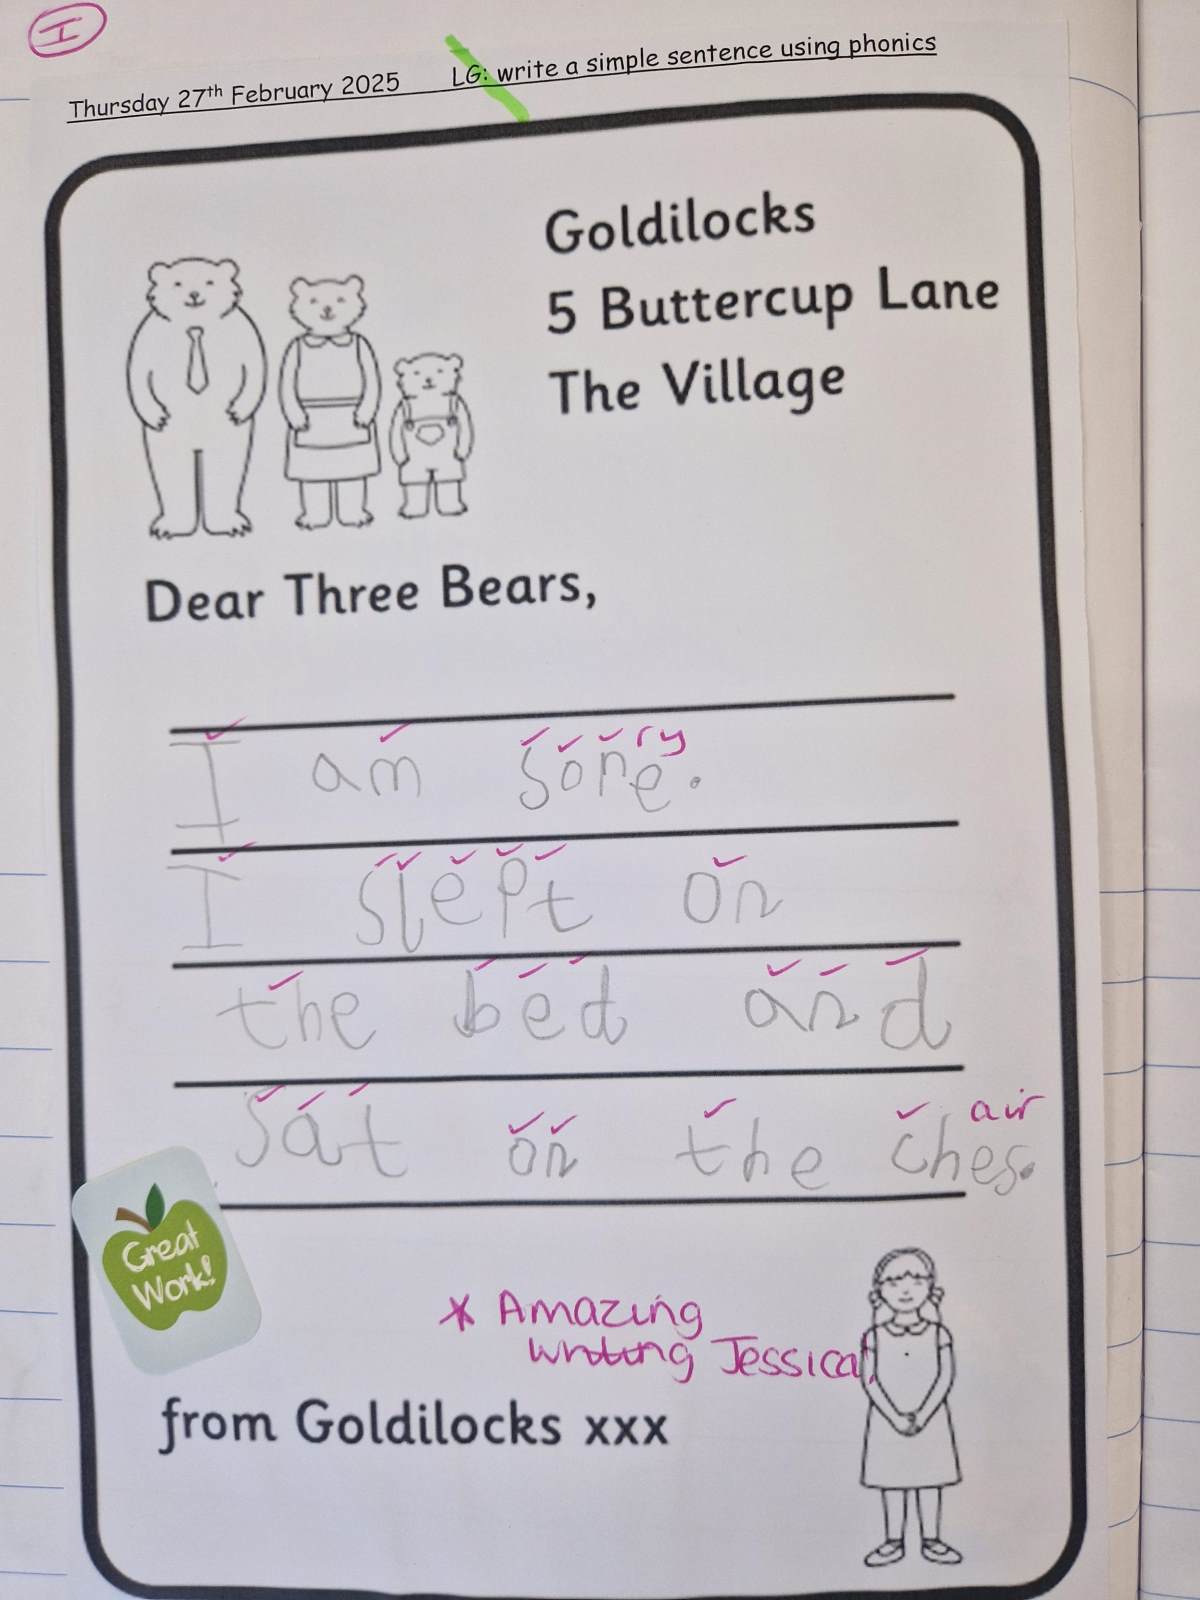 I
Thursday 27th February 2025 LG: write a simple sentence using phonics
Goldilocks
5 Buttercup Lane
The Village
Dear Three Bears,
ry
I am sore.
I slept on
the bed and
air
sat on the ches.
Great
Work!
* Amazing
writing Jessica!
from Goldilocks xxx